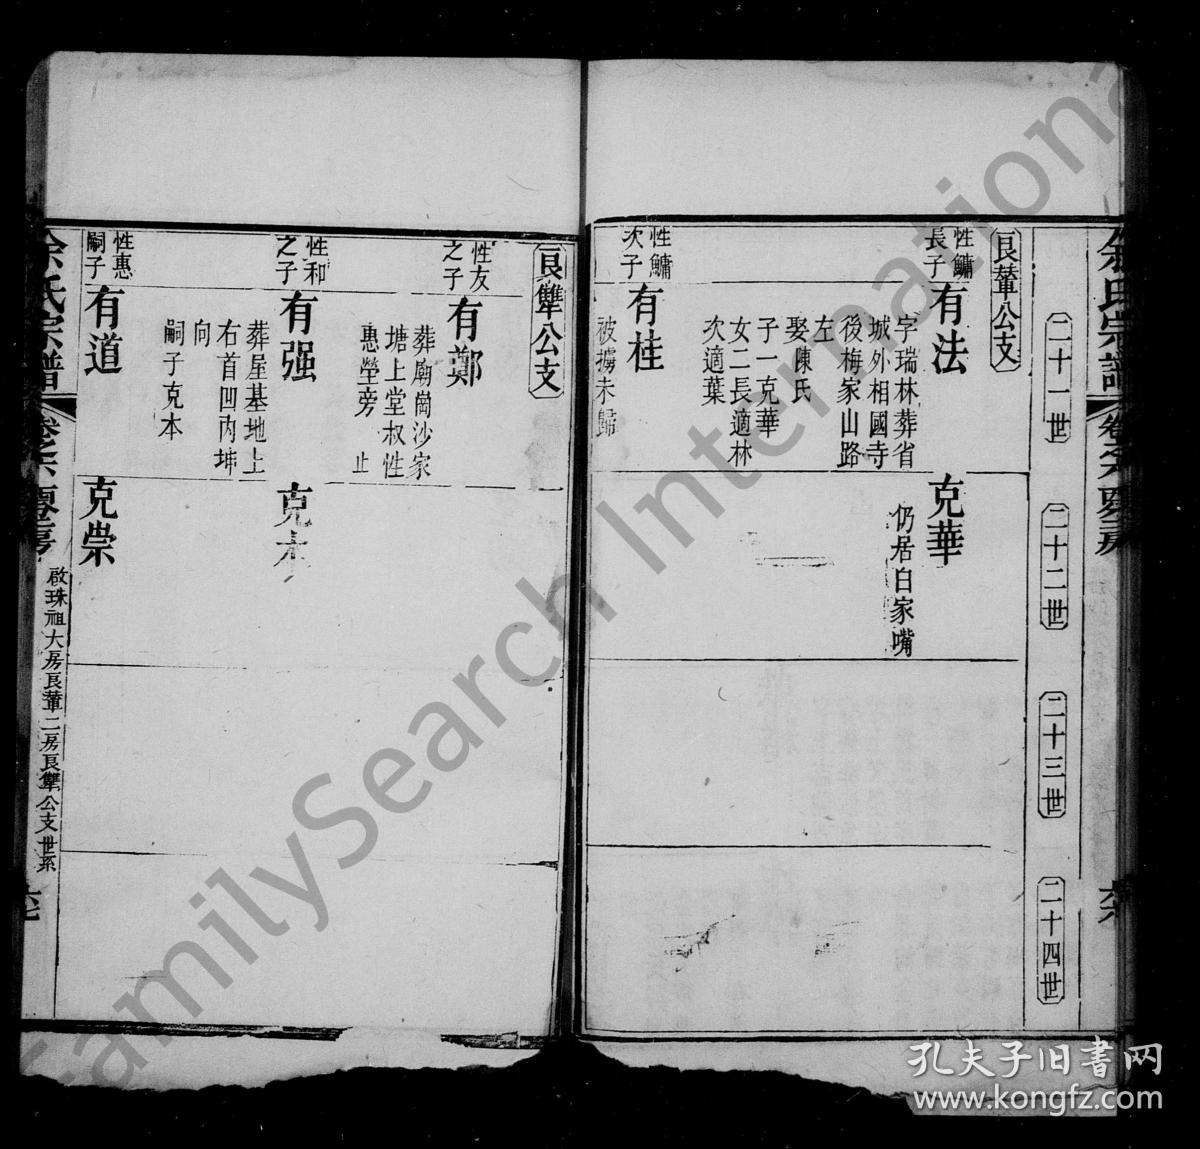 余氏宗譜
卷之六
二十一世
二十二世
二十三世
二十四世
良輦公支
性鱅
長子
有法
字瑞林葬省
城外相國寺
後梅家山路
左
娶陳氏
子一克華
女二長適林
次適葉
克華
仍居白家嘴
性鱅
次子
有桂
被擄未歸
良隼公支
性友
之子
有鄭
葬廟崗沙家
塘上堂叔性
惠塋旁 止
性和
之子
有强
葬屋基地上
右首凹丙坤
向
嗣子克本
克本
性惠
嗣子
有道
克崇
余氏宗譜
卷之六
啟珠祖大房良輦二房良隼公支世系
FamilySearch International
孔夫子旧書网
www.kongfz.com